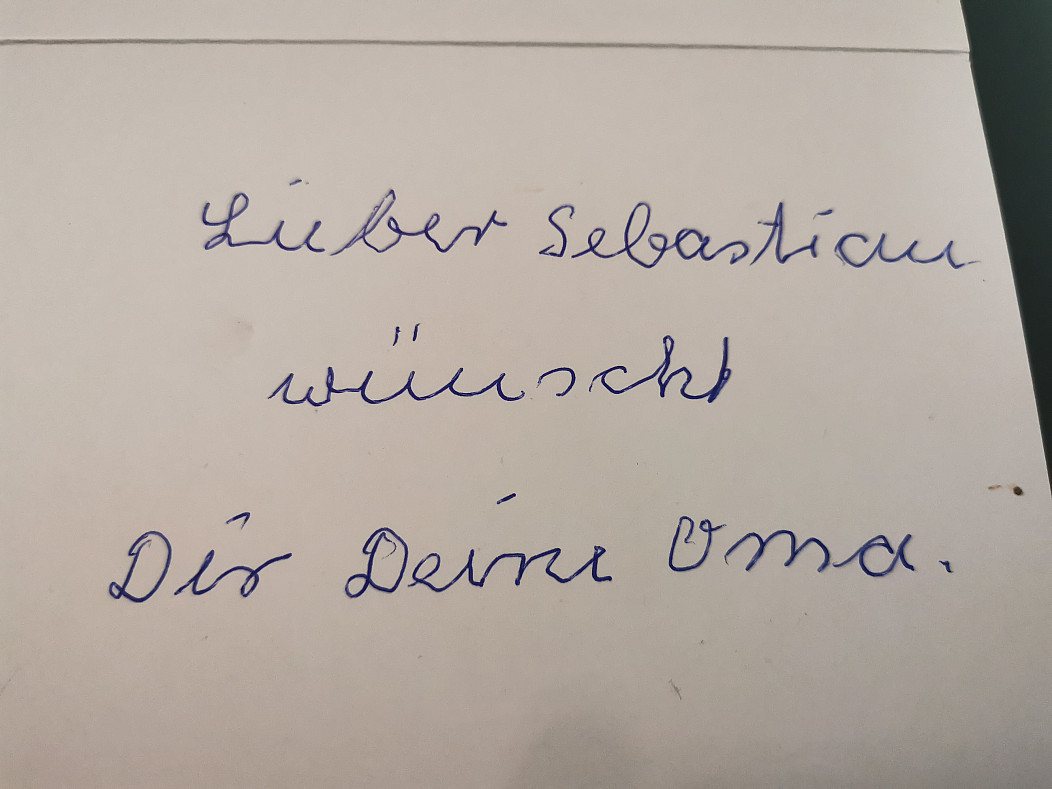 Lieber Sebastian
wünscht
Dir Deine Oma.